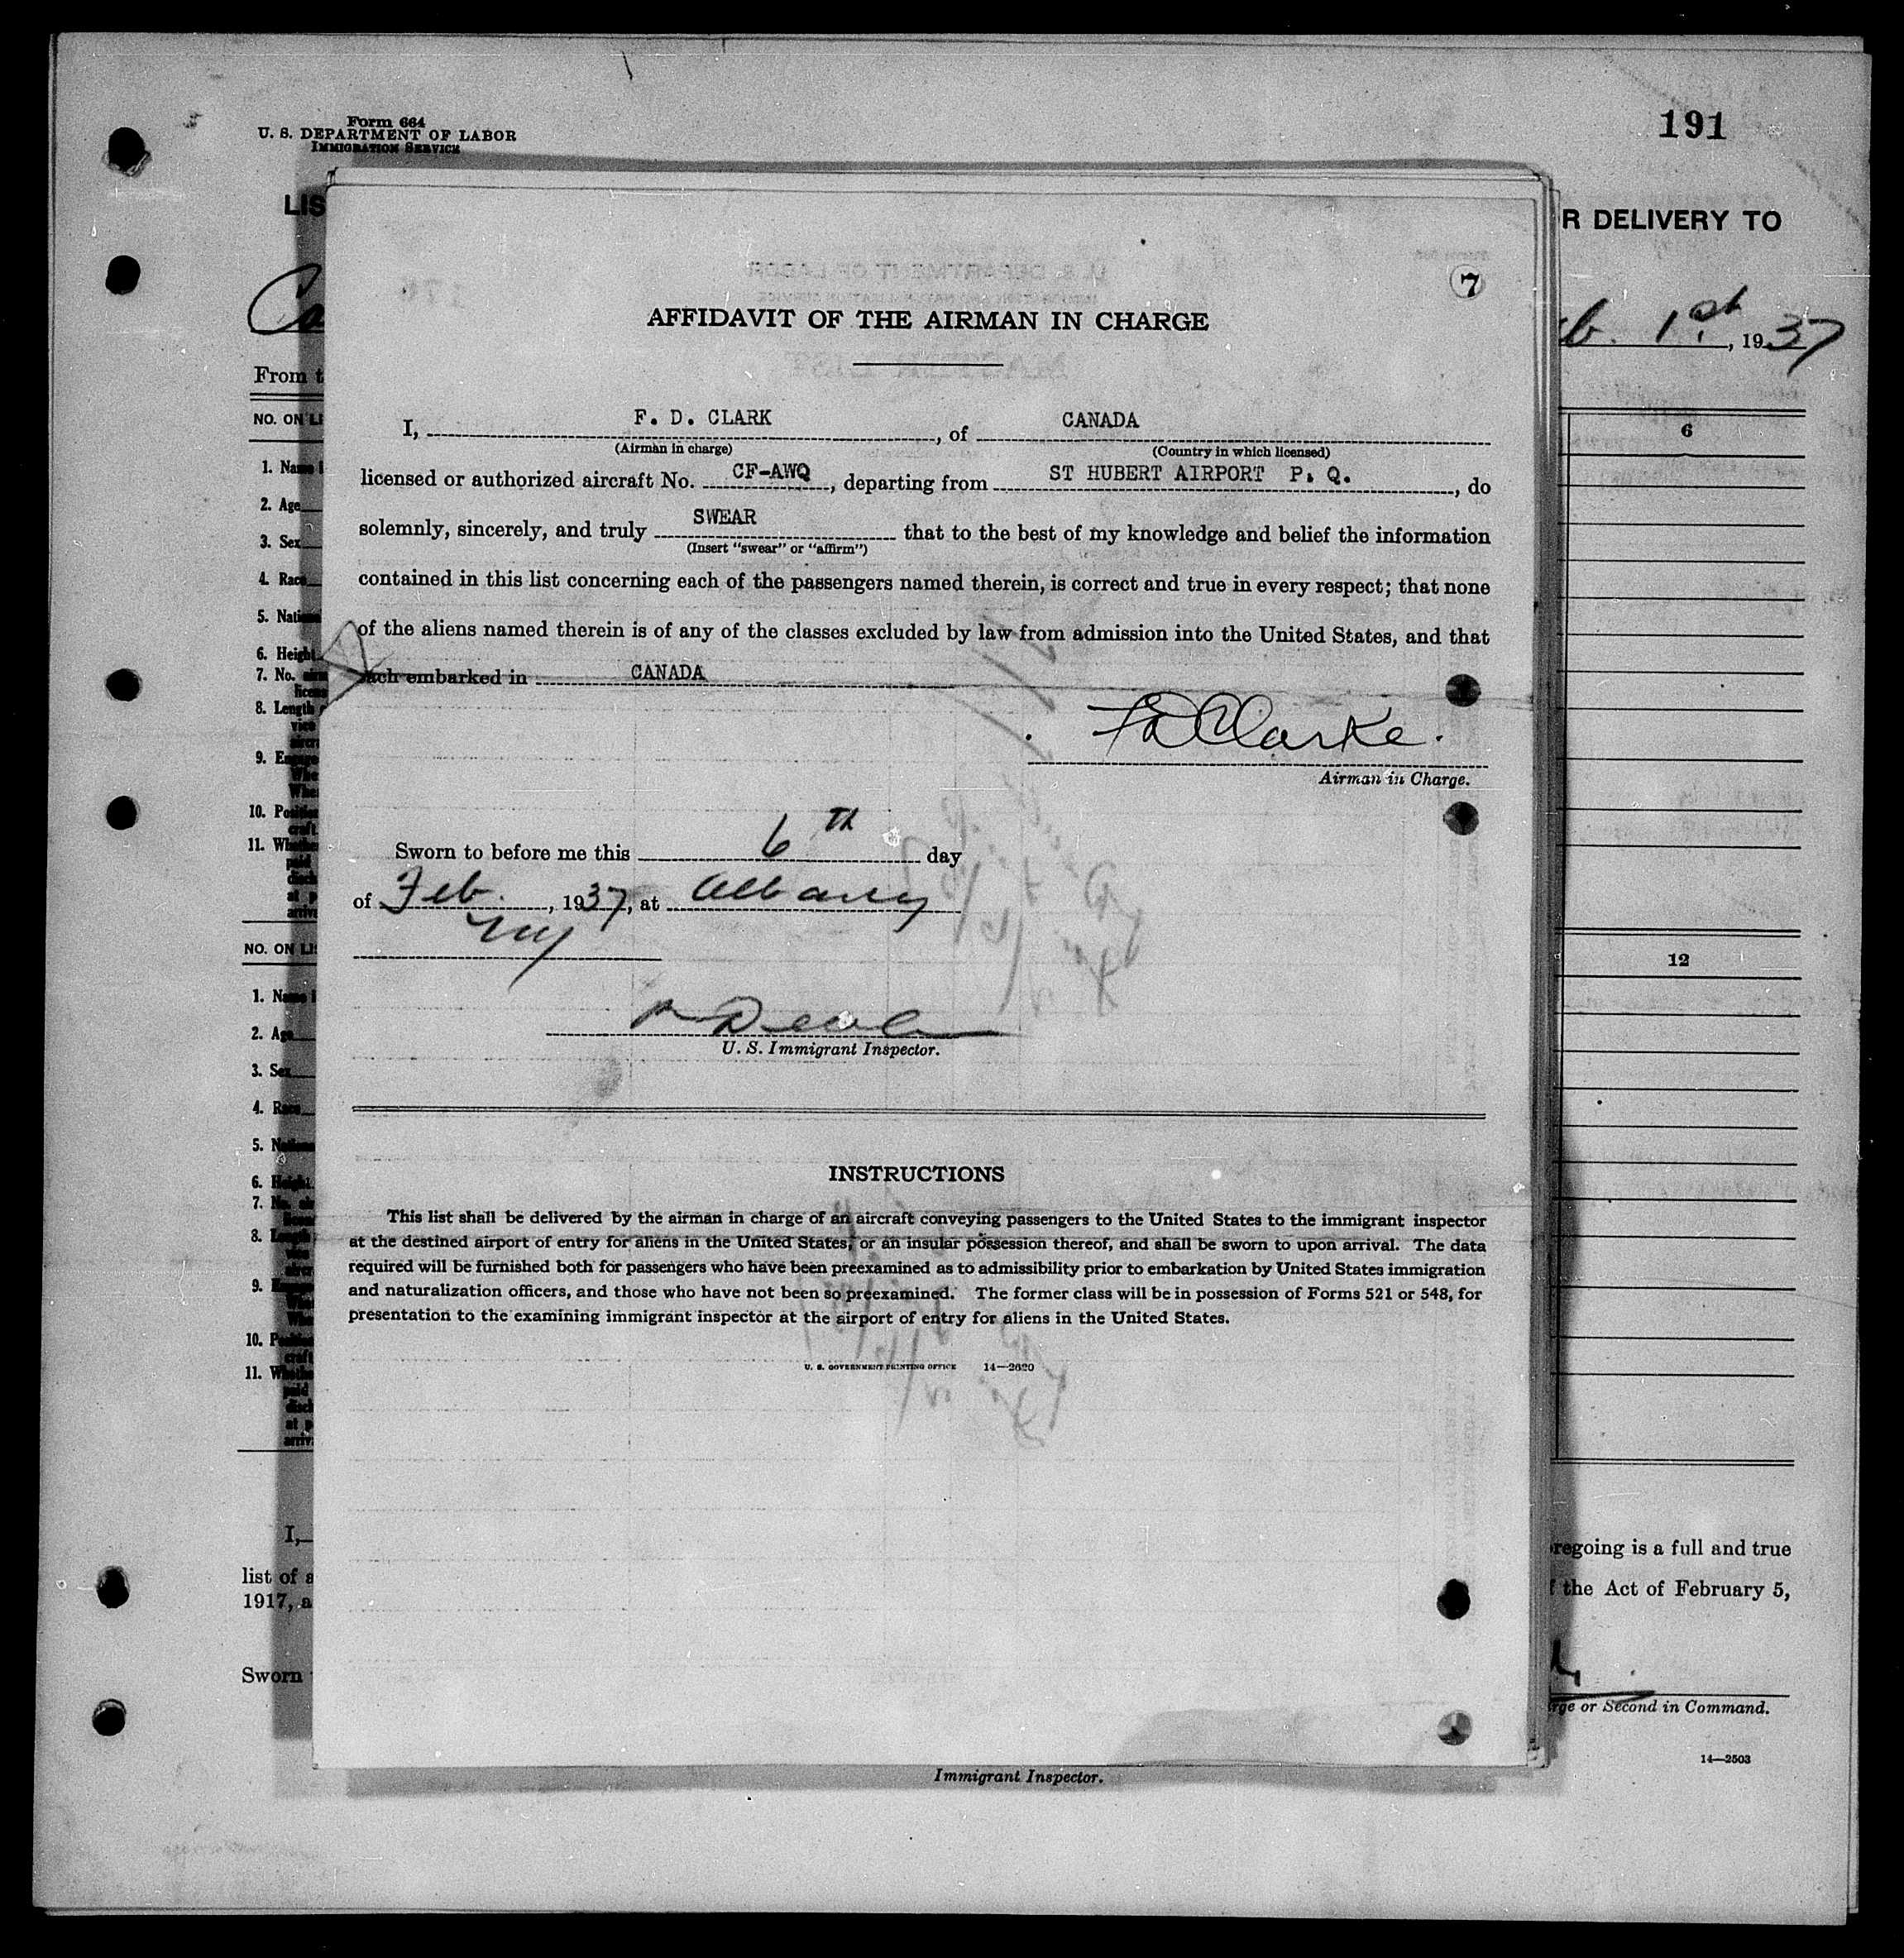 Form 664
U. S. DEPARTMENT OF LABOR
IMMIGRATION SERVICE
191
R DELIVERY TO
1st, 1937
From
NO. ON
6
1. Name
2. Age
3. Sex
4. Race
5.
6. Height
7. No.
8. Length
9.
10.
11.
NO. ON
12
1.
2.
3. Sex
4.
5.
6.
7.
8.
9.
10.
11.
7
AFFIDAVIT OF THE AIRMAN IN CHARGE
I, F. D. CLARK, of CANADA
(Airman in charge) (Country in which licensed)
licensed or authorized aircraft No. CF-AWQ, departing from ST HUBERT AIRPORT P. Q., do
solemnly, sincerely, and truly SWEAR that to the best of my knowledge and belief the information
(Insert "swear" or "affirm")
contained in this list concerning each of the passengers named therein, is correct and true in every respect; that none
of the aliens named therein is of any of the classes excluded by law from admission into the United States, and that
each embarked in CANADA
FD Clarke.
Airman in Charge.
Sworn to before me this 6th day
of Feb., 1937, at Albany
NY
U. S. Immigrant Inspector.
INSTRUCTIONS
This list shall be delivered by the airman in charge of an aircraft conveying passengers to the United States to the immigrant inspector
at the destined airport of entry for aliens in the United States, or an insular possession thereof, and shall be sworn to upon arrival. The data
required will be furnished both for passengers who have been preexamined as to admissibility prior to embarkation by United States immigration
and naturalization officers, and those who have not been so preexamined. The former class will be in possession of Forms 521 or 548, for
presentation to the examining immigrant inspector at the airport of entry for aliens in the United States.
U. S. GOVERNMENT PRINTING OFFICE 14—2620
I,
regoing is a full and true
list of a
the Act of February 5,
1917, a
Sworn
or Second in Command.
14—2503
Immigrant Inspector.